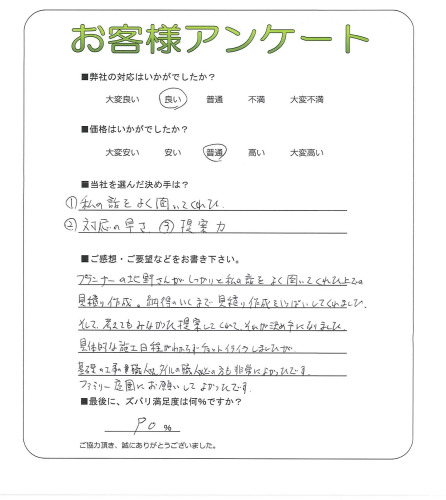 お客様アンケート
■弊社の対応はいかがでしたか？
大変良い 良い 普通 不満 大変不満
■価格はいかがでしたか？
大変安い 安い 普通 高い 大変高い
■当社を選んだ決め手は？
① 私の話をよく聞いてくれた
② 対応の早さ ③ 提案力
■ご感想・ご要望などをお書き下さい。
プランナーの北野さんがしっかりと私の話をよく聞いてくれた上での
見積り作成。納得のいくまで見積り作成をいっぱいしてくれました。
そして、考えてもみなかった提案してくれて、それが決め手になりました
具体的な施工日程がわからずチョットイライラしましたが
基礎の工事職人さん、タイルの職人さんの方も非常によかったです。
ファミリー庭園にお願いしてよかったです。
■最後に、ズバリ満足度は何%ですか？
90 %
ご協力頂き、誠にありがとうございました。